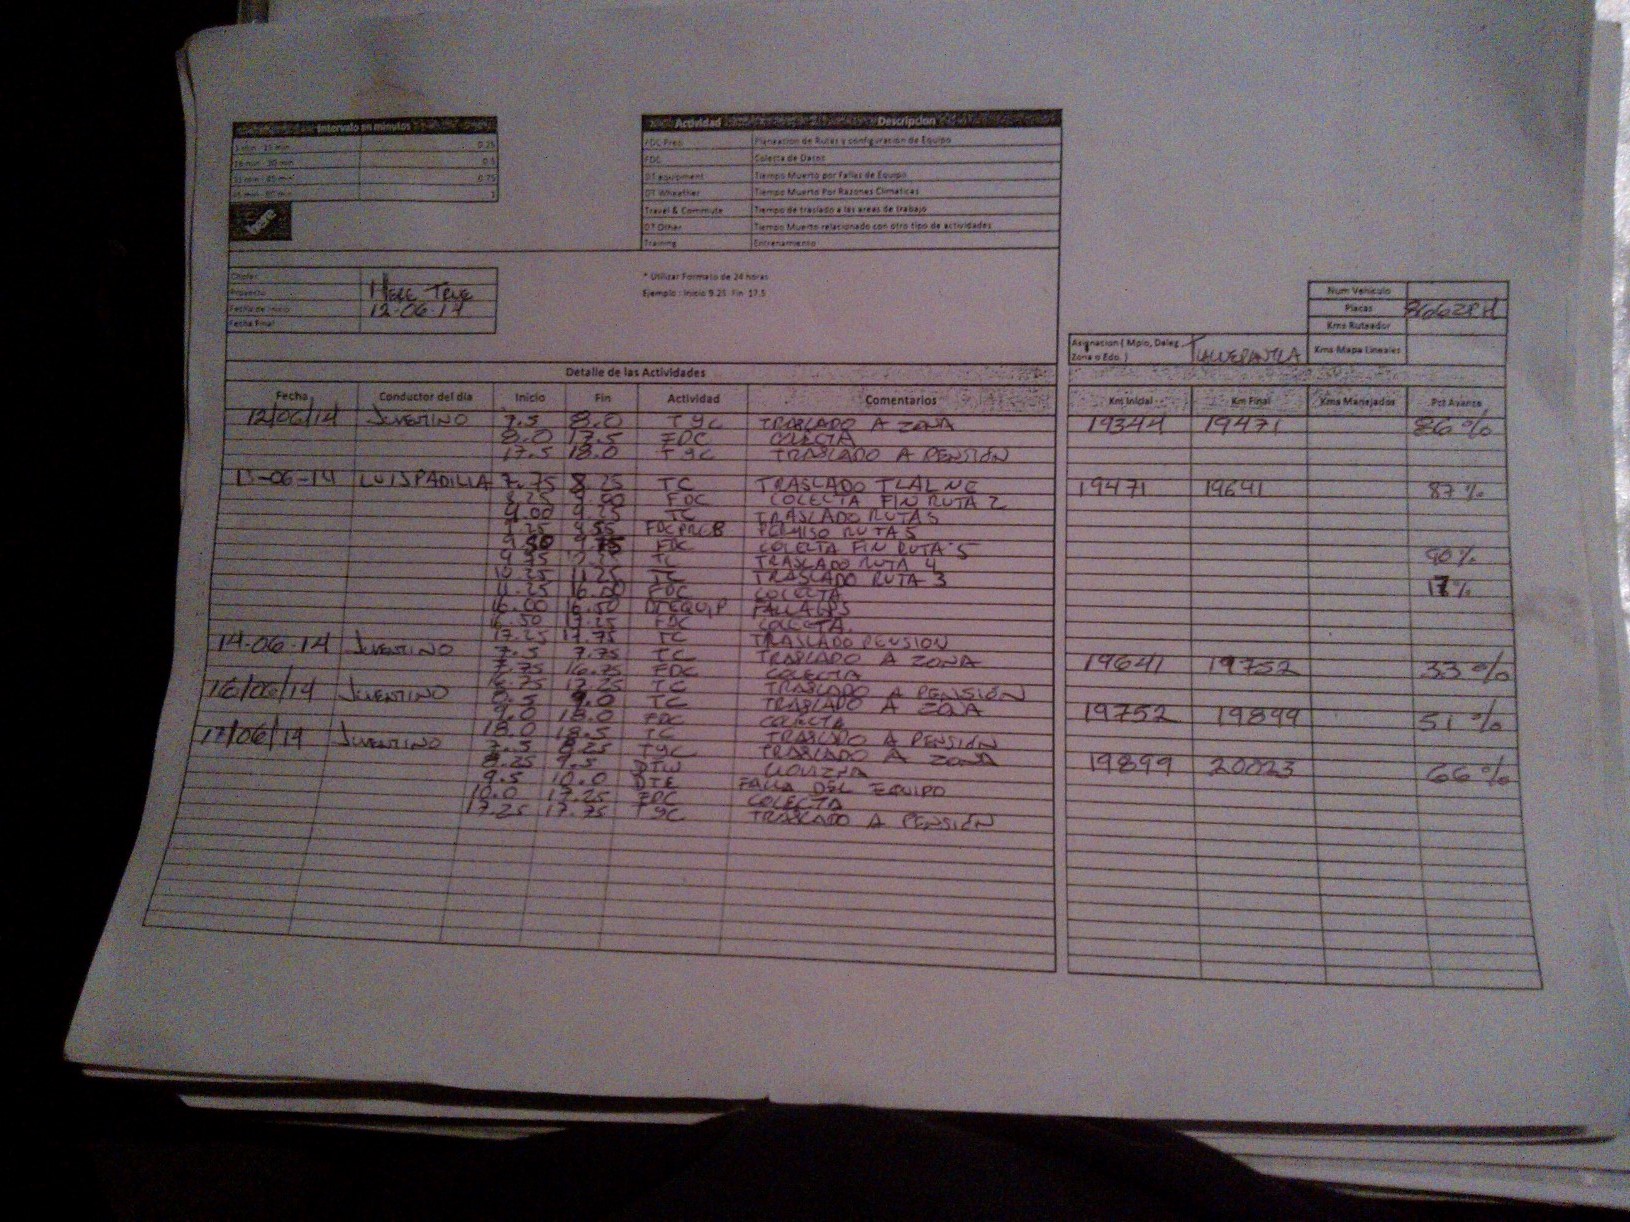 Intervalo en minutos
0.25
16 min - 30 min 0.5
31 min - 45 min 0.75
45 min - 60 min 1
here
Actividad Descripcion
FDC Prep Planeacion de Rutas y configuracion de Equipo
FDC Colecta de Datos
DT equipment Tiempo Muerto por Fallas de Equipo
DT Wheather Tiempo Muerto Por Razones Climaticas
Travel & Commute Tiempo de traslado a las areas de trabajo
DT Other Tiempo Muerto relacionado con otro tipo de actividades
Training Entrenamiento
Chofer
Proyecto HERE TRUE
Fecha de Inicio 12-06-14
Fecha Final
* Utilizar Formato de 24 horas
Ejemplo : Inicio 9.25 Fin 17.5
Num Vehiculo
Placas
Kms Ruteador
Kms Mapa Lineales
Asignacion ( Mpio, Deleg, Zona o Edo. ) TLALNEPANTLA
Detalle de las Actividades
Fecha Conductor del dia Inicio Fin Actividad Comentarios Km Inicial Km Final Kms Manejados Pct Avance
12/06/14 JUVENTINO 7.5 8.0 TYC TRASLADO A ZONA 19344 19471 86%
8.0 17.5 FDC COLECTA
17.5 18.0 TYC TRASLADO A PENSIÓN
13-06-14 LUIS PADILLA 7.75 8.25 TC TRASLADO TLALNE 19471 19641 87%
8.25 9.00 FDC COLECTA FIN RUTA 2
9.00 9.25 TC TRASLADO RUTA 5
9.25 PERMISO RUTA 5
9.50 9.75 FDC COLECTA FIN RUTA 5
TC TRASLADO RUTA 4 90%
10.25 11.25 TC TRASLADO RUTA 3
11.25 16.00 FDC COLECTA 17%
16.00 16.50 DT EQUIP FALLA GPS
16.50 17.25 FDC COLECTA
17.25 17.75 TC TRASLADO PENSION
14-06-14 JUVENTINO 7.5 7.75 TC TRASLADO A ZONA 19641 19752 33%
7.75 16.75 FDC COLECTA
16.75 TC TRASLADO A PENSIÓN
16/06/14 JUVENTINO 8.5 9.0 TC TRASLADO A ZONA 19752 19899 51%
9.0 18.0 FDC COLECTA
18.0 18.5 TC TRASLADO A PENSIÓN
17/06/14 JUVENTINO 7.5 8.25 TYC TRASLADO A ZONA 19899 20023 66%
8.25 9.5 DTW LLOVIZNA
9.5 10.0 DTE FALLA DEL EQUIPO
10.0 17.25 FDC COLECTA
17.25 17.75 TYC TRASLADO A PENSIÓN